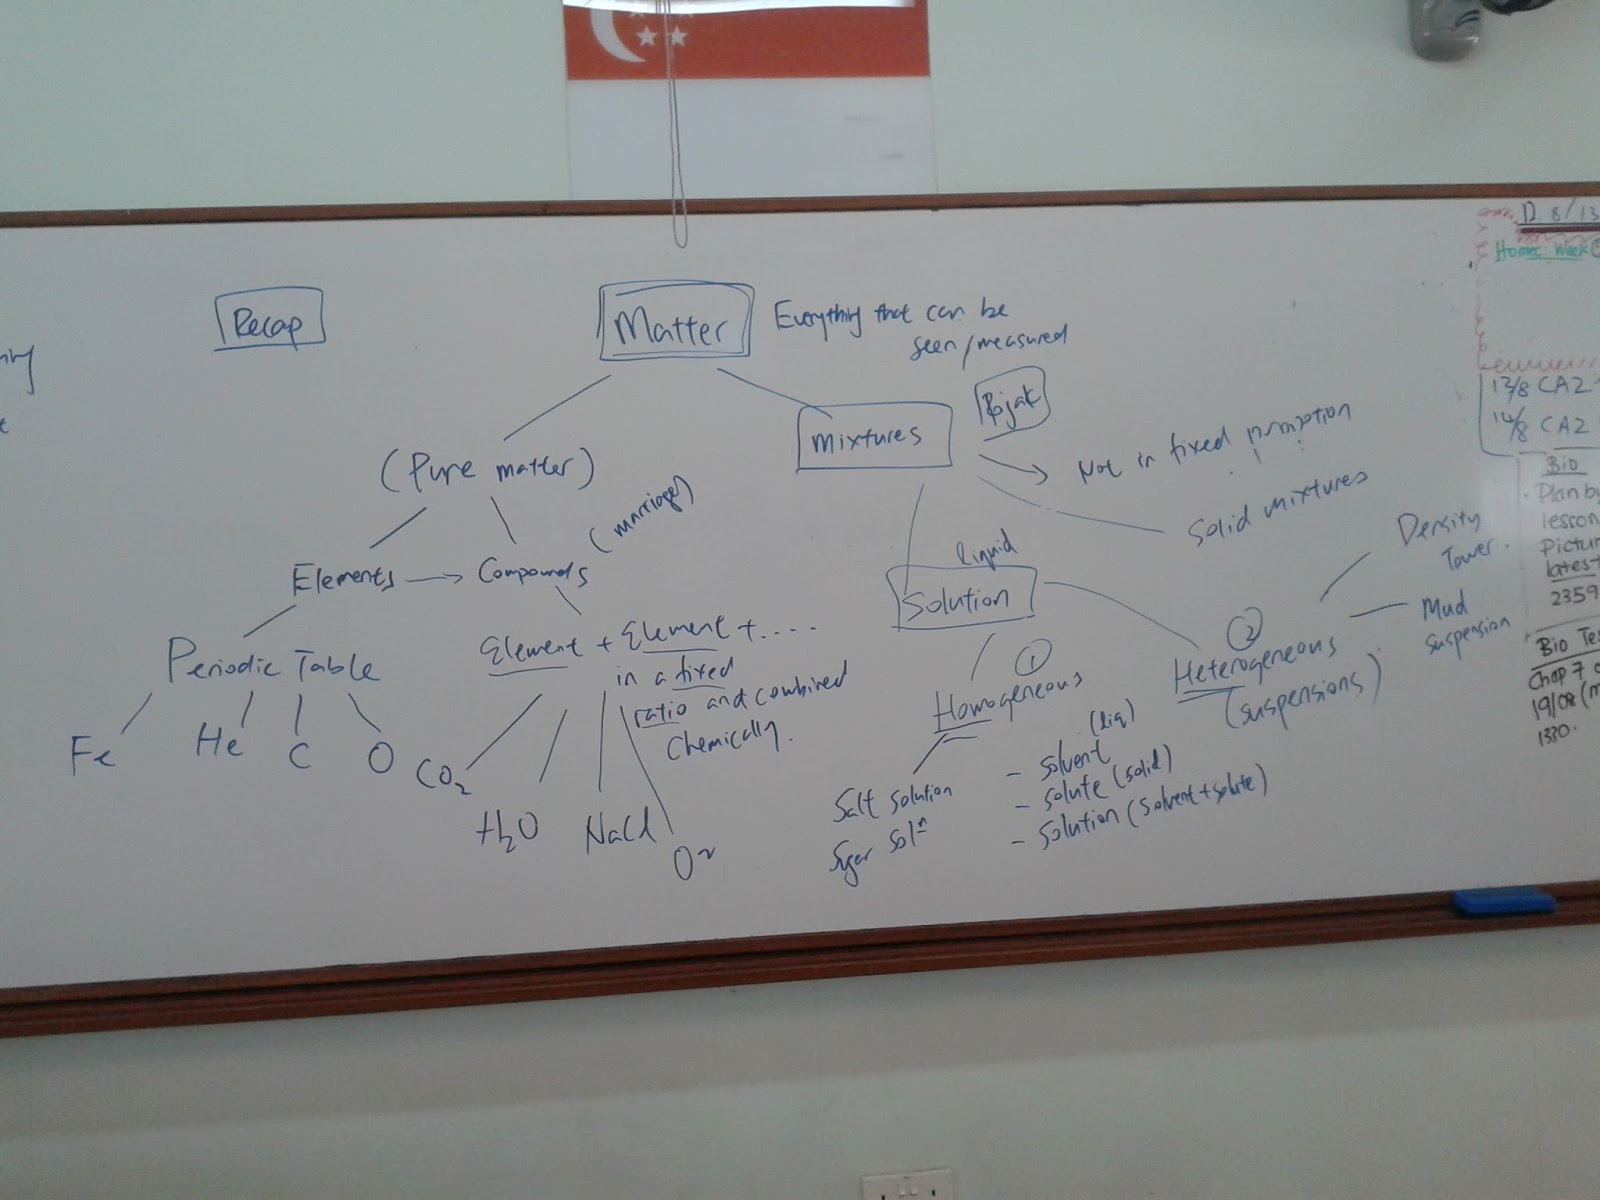 Recap
Matter
Everything that can be
seen/measured
Mixtures
Rojak
Not in fixed proportion
Solid mixtures
(Pure matter)
Elements → Compounds
(marriage)
Periodic Table
Fe He C O
Element + Element + ....
in a fixed
ratio and combined
chemically.
CO₂
H₂O
NaCl
O₂
liquid
Solution
① Homogeneous
Salt solution
Sugar solⁿ
- Solvent (liq)
- Solute (solid)
- Solution (solvent + solute)
② Heterogeneous
(suspensions)
Density
Tower.
Mud
suspension
8/13
Week
13/8 CA2
14/8 CA2
Bio
Plan by
lesson
2359
Bio
Chap 7
19/08
1330.